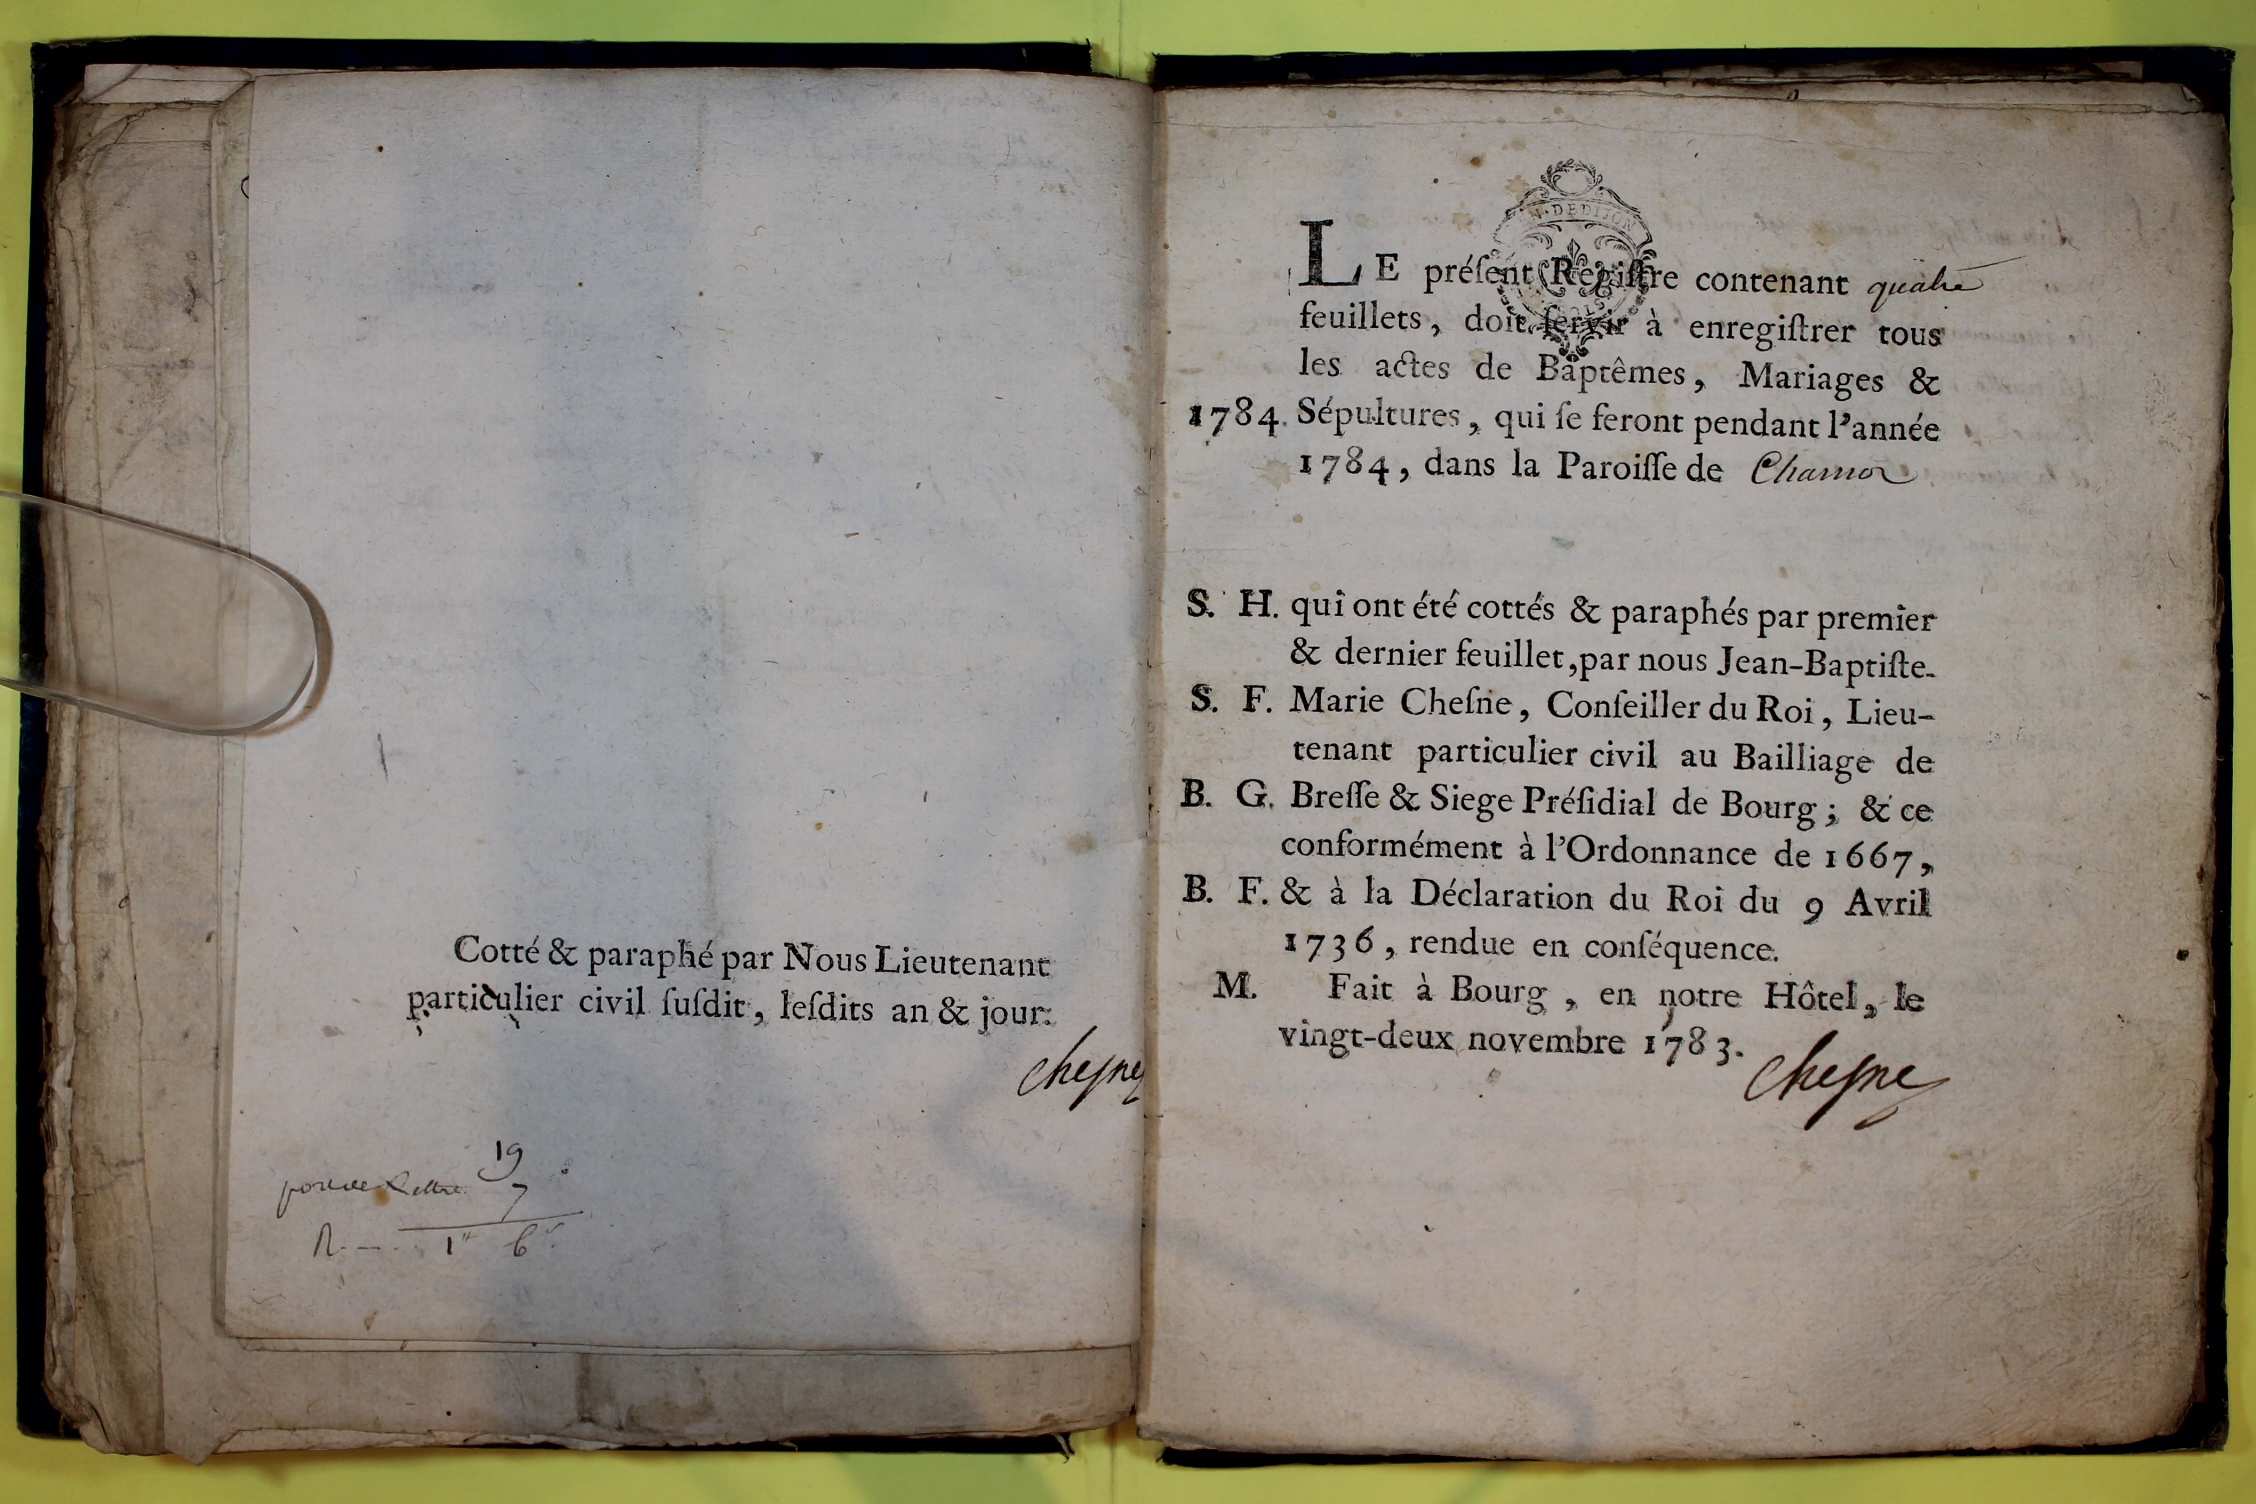 Cotté & paraphé par Nous Lieutenant
particulier civil ſuſdit, leſdits an & jour.
Cheſne
19
7
1 6
DE DIJON
LE préſent Regiſtre contenant quatre
feuillets, doit ſervir à enregiſtrer tous
les actes de Baptêmes, Mariages &
1784. Sépultures, qui ſe feront pendant l'année
1784, dans la Paroiſſe de
S. H. qui ont été cottés & paraphés par premier
& dernier feuillet, par nous Jean-Baptiſte-
S. F. Marie Cheſne, Conſeiller du Roi, Lieu-
tenant particulier civil au Bailliage de
B. G. Breſſe & Siege Préſidial de Bourg ; & ce
conformément à l'Ordonnance de 1667,
B. F. & à la Déclaration du Roi du 9 Avril
1736, rendue en conſéquence.
M. Fait à Bourg, en notre Hôtel, le
vingt-deux novembre 1783.
Cheſne